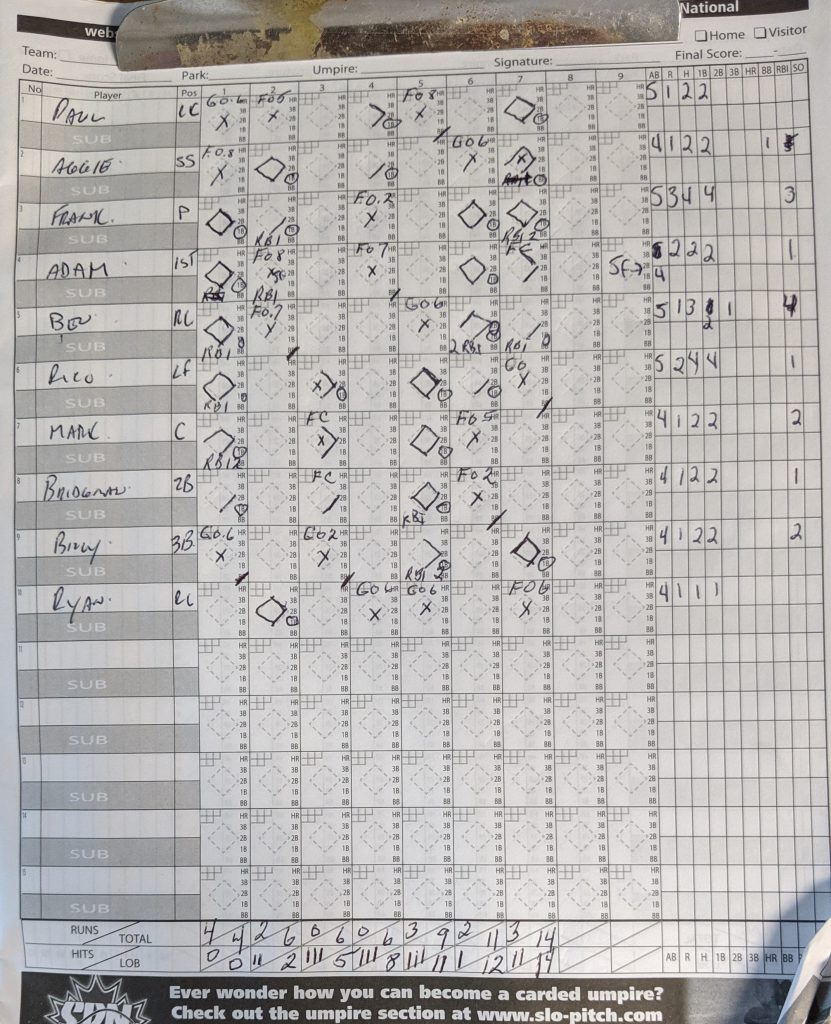 National
webs
Home Visitor
Team:
Final Score: -
Date: Park: Umpire: Signature:
No Player Pos 1 2 3 4 5 6 7 8 9 AB R H 1B 2B 3B HR BB RBI SO
1 PAUL LC GO.6 FO5 FO8 5 1 2 2
SUB
2 AGGIE SS F.O.8 GO6 4 1 2 2 1
SUB
3 FRANK. P RBI FO.2 RBI 2 5 3 4 4 3
SUB
4 ADAM 1ST FO8 SF RBI FO7 FC SF-7 5 2 2 2 1
SUB 4
5 BEV RC RBI FO.7 GO6 2 RBI RBI 5 1 3 2 1 4
SUB
6 RICO LF RBI GO 5 2 4 4 1
SUB
7 MARK C RBI 2 FC FO5 4 1 2 2 2
SUB
8 BRIDGMAN 2B FC RBI FO2 4 1 2 2 1
SUB
9 BILLY 3B GO.6 GO2 RBI 2 4 1 2 2 2
SUB
10 RYAN. RC GO6 GO6 FO6 4 1 1 1
SUB
11
SUB
12
SUB
13
SUB
14
SUB
15
SUB
RUNS TOTAL 4 4 2 6 0 6 0 6 3 9 2 11 3 14
HITS LOB 0 0 11 2 111 5 111 8 111 11 1 12 11 14 AB R H 1B 2B 3B HR BB
Ever wonder how you can become a carded umpire?
Check out the umpire section at www.slo-pitch.com